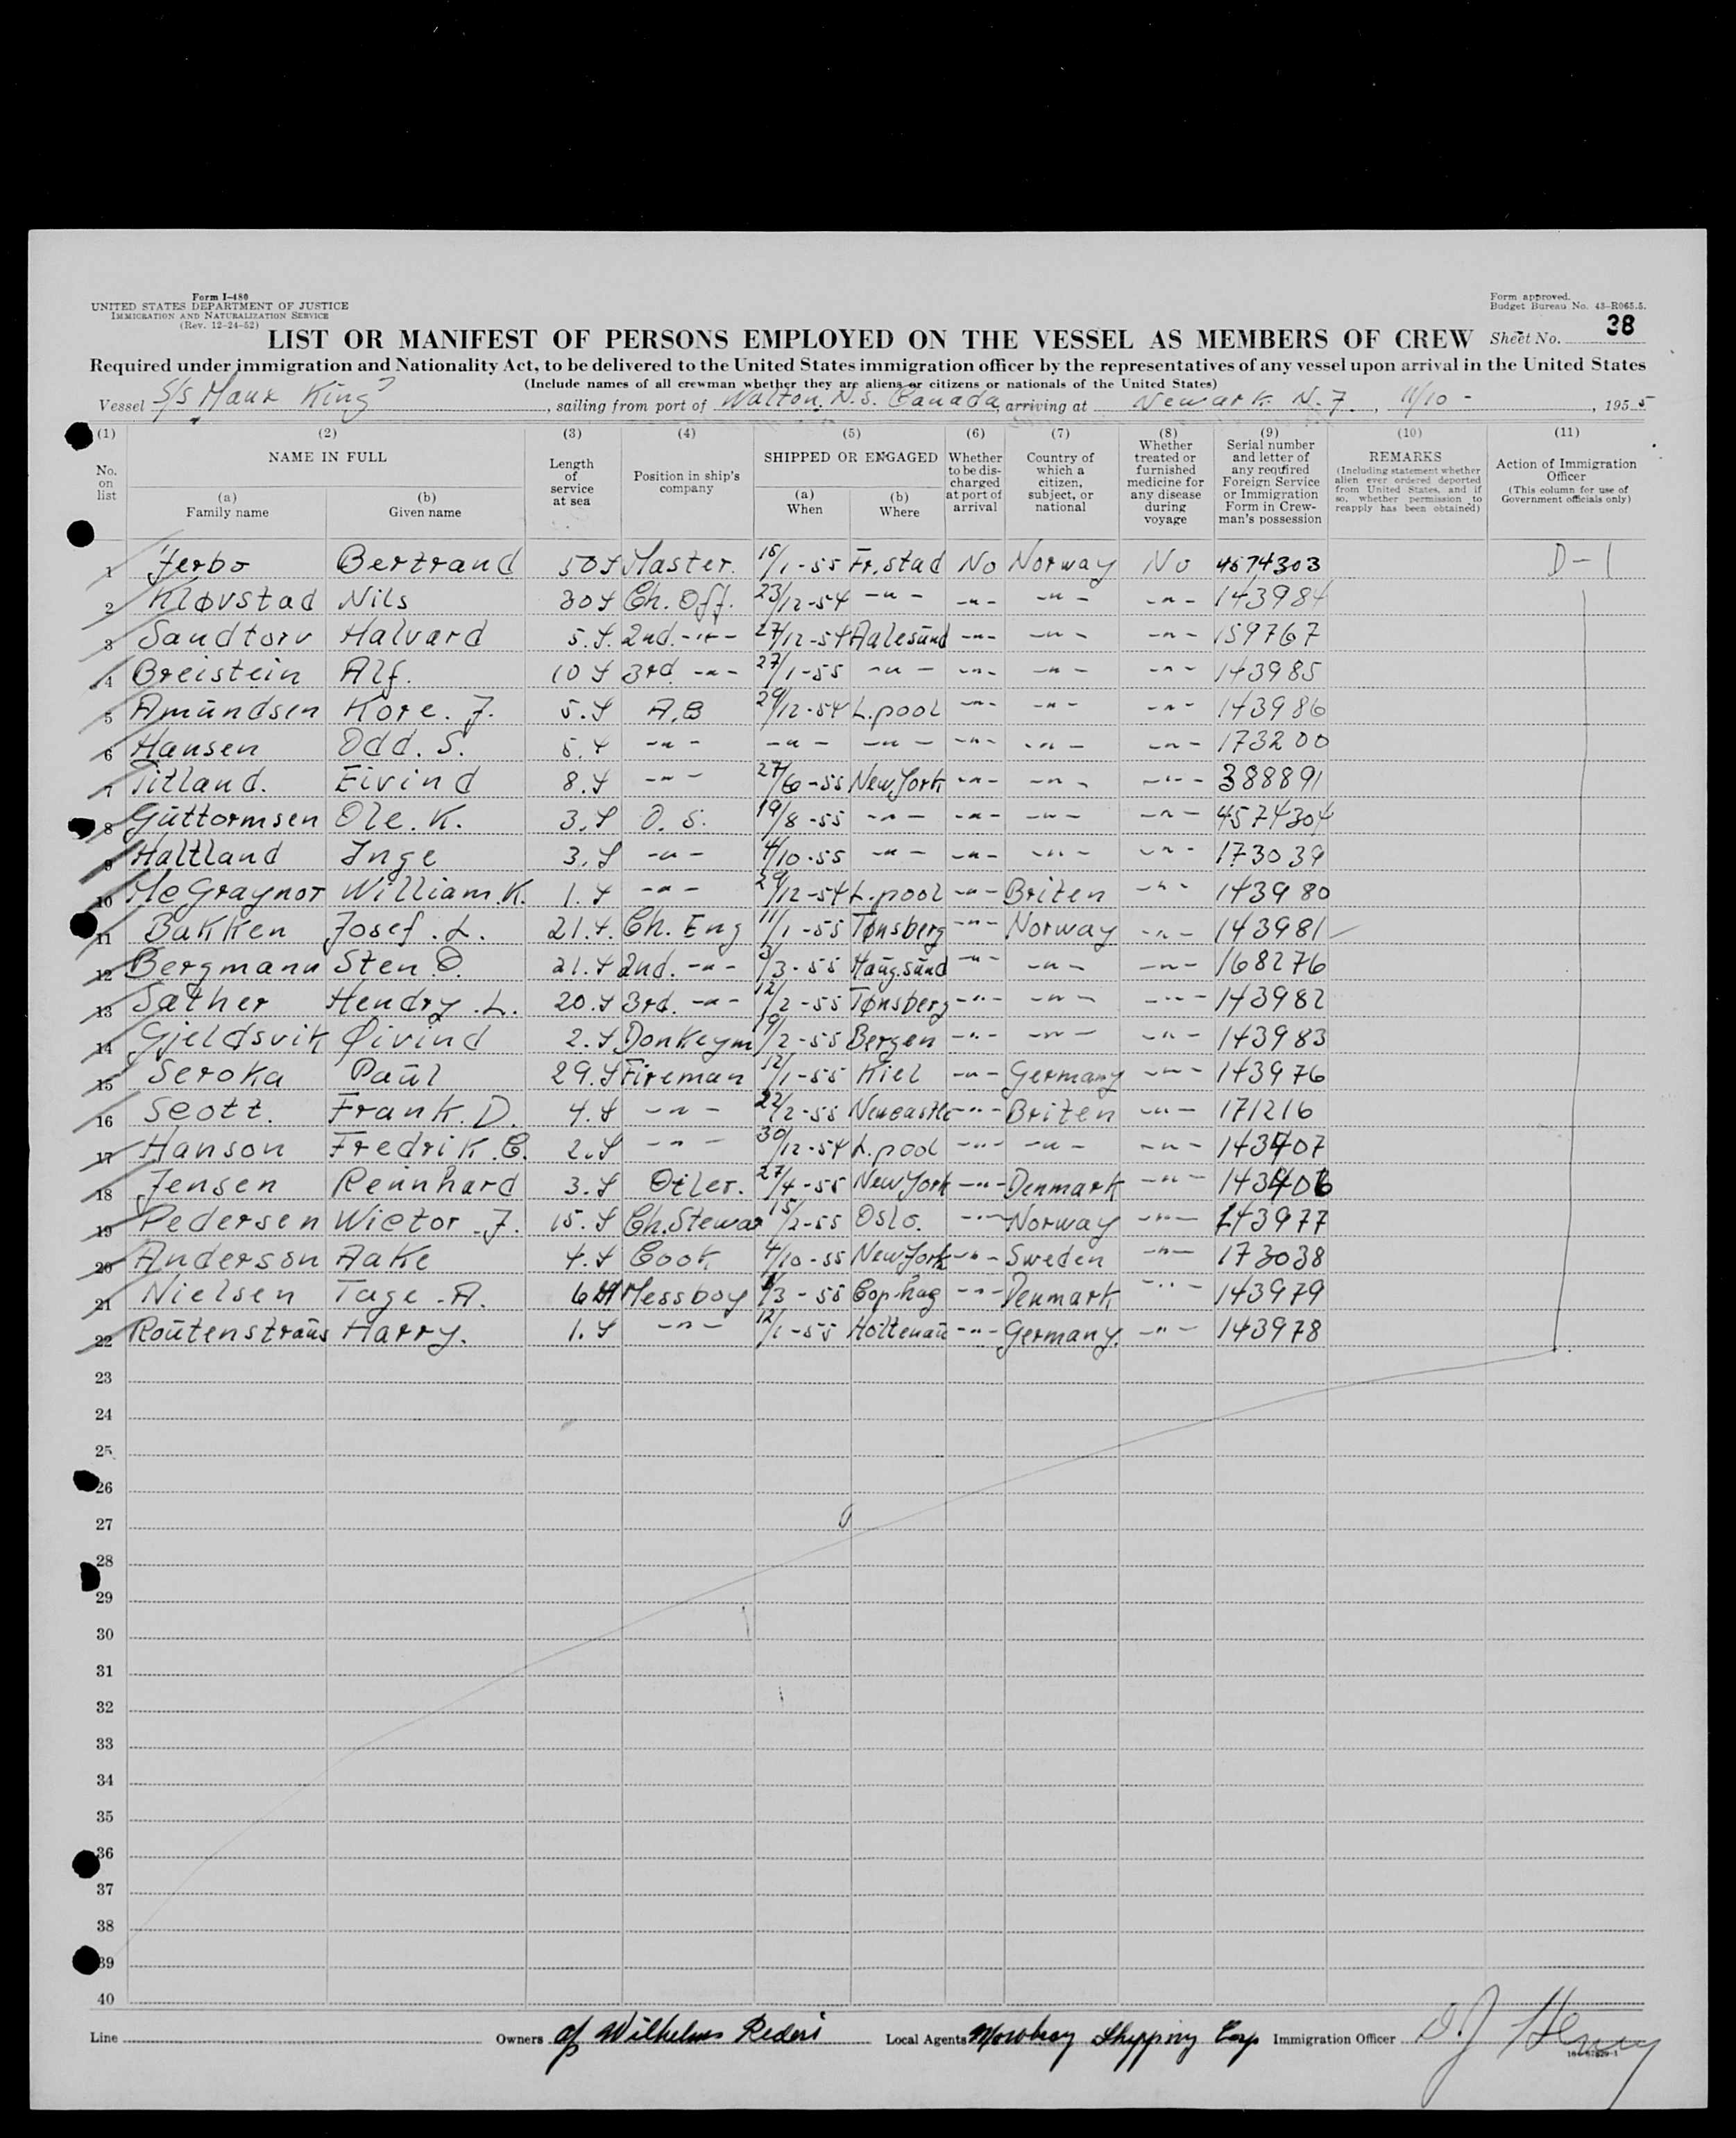 Form I-480
UNITED STATES DEPARTMENT OF JUSTICE
IMMIGRATION AND NATURALIZATION SERVICE
(Rev. 12-24-52)
Form approved.
Budget Bureau No. 43-R065.5.
LIST OR MANIFEST OF PERSONS EMPLOYED ON THE VESSEL AS MEMBERS OF CREW Sheet No. 38
Required under immigration and Nationality Act, to be delivered to the United States immigration officer by the representatives of any vessel upon arrival in the United States
(Include names of all crewman whether they are aliens or citizens or nationals of the United States)
Vessel S/S Manx King, sailing from port of Walton, N.S. Canada, arriving at Newark N.J., 11/10 -, 1955
(1) (2) (3) (4) (5) (6) (7) (8) (9) (10) (11)
No. on list
NAME IN FULL
(a) Family name
(b) Given name
Length of service at sea
Position in ship's company
SHIPPED OR ENGAGED
(a) When
(b) Where
Whether to be discharged at port of arrival
Country of which a citizen, subject, or national
Whether treated or furnished medicine for any disease during voyage
Serial number and letter of any required Foreign Service or Immigration Form in Crewman's possession
REMARKS
(Including statement whether alien ever ordered deported from United States, and if so, whether permission to reapply has been obtained)
Action of Immigration Officer
(This column for use of Government officials only)
1 Jerbo Bertrand 50 Y Master. 15/1-55 Fr.stad No Norway No 4574303 D-1
2 Kløvstad Nils 30 Y Ch. Off. 23/12-54 -"- -"- -"- -"- 143984
3 Sandtorv Halvard 5.Y. 2nd. -"- 27/12-54 Aalesund -"- -"- -"- 159767
4 Breistein Alf. 10 Y 3rd -"- 27/1-55 -"- -"- -"- -"- 143985
5 Amundsen Kore. J. 5.Y A.B 29/12-54 L.pool -"- -"- -"- 143986
6 Hansen Odd. S. 5.Y -"- -"- -"- -"- -"- -"- 173200
7 Titland. Eivind 8.Y -"- 27/6-55 New York -"- -"- -"- 388891
8 Guttormsen Ole. K. 3.Y O. S. 19/8-55 -"- -"- -"- -"- 4574304
9 Haltland Inge 3.Y -"- 4/10-55 -"- -"- -"- -"- 173039
10 McGraynor William.K. 1.Y -"- 29/12-54 L.pool -"- Briten -"- 143980
11 Bakken Josef. L. 21.Y. Ch. Eng 11/1-55 Tønsberg -"- Norway -"- 143981
12 Bergmann Sten O. 21.Y 2nd. -"- 3/3-55 Haug.sund -"- -"- -"- 168276
13 Sæther Hendry. L. 20.Y 3rd. -"- 12/2-55 Tønsberg -"- -"- -"- 143982
14 Gjeldsvik Øivind 2.Y Donkeym 9/2-55 Bergen -"- -"- -"- 143983
15 Seroka Paul 29.Y Fireman 12/1-55 Kiel -"- Germany -"- 143976
16 Scott. Frank. D. 4.Y -"- 22/2-55 Newcastle -"- Briten -"- 171216
17 Hanson Fredrik. C. 2.Y -"- 30/12-54 L.pool -"- -"- -"- 143407
18 Jensen Reinhard 3.Y Oiler. 27/4-55 New York -"- Denmark -"- 143406
19 Pedersen Wictor. J. 15.Y Ch.Stewar 15/2-55 Oslo. -"- Norway -"- 143977
20 Anderson Aake 4.Y Cook 4/10-55 New York -"- Sweden -"- 173038
21 Nielsen Tage. A. 6 M Messboy /3-55 Cop.hag -"- Denmark -"- 143979
22 Routenstraus Harry. 1.Y -"- 12/1-55 Holtenau -"- Germany. -"- 143978
23
24
25
26
27
28
29
30
31
32
33
34
35
36
37
38
39
40
Line Owners A/S Wilhelms Rederi Local Agents Mowbray Shipping Corp Immigration Officer D.J. Henry